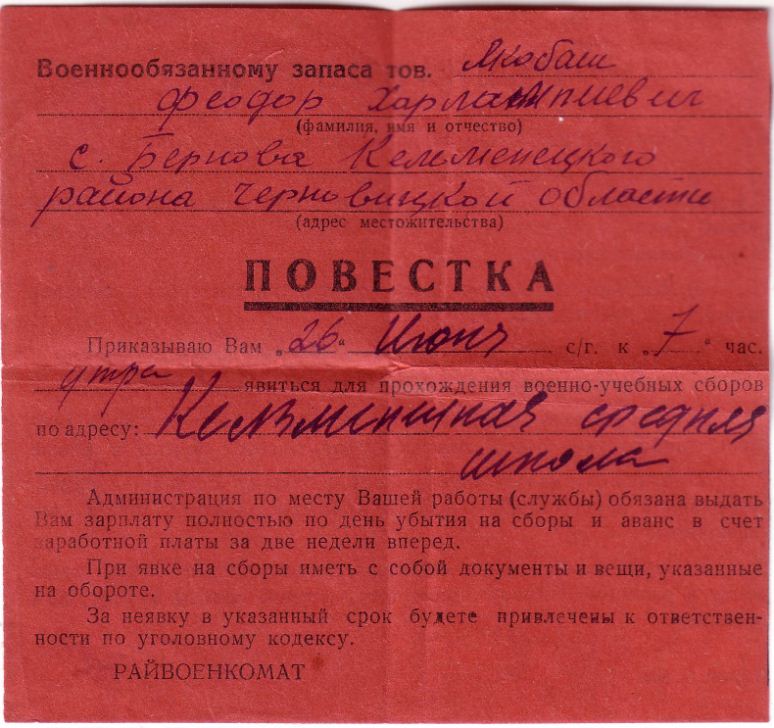 Военнообязанному запаса тов. Якобаш
Феодор Харлампиевич
(фамилия, имя и отчество)
с. Бернова Кельменецкого
района Черновицкой области
(адрес местожительства)
ПОВЕСТКА
Приказываю Вам „26“ Июня с/г. к „7“ час.
утра явиться для прохождения военно-учебных сборов
по адресу: средняя
школа
Администрация по месту Вашей работы (службы) обязана выдать
Вам зарплату полностью по день убытия на сборы и аванс в счет
заработной платы за две недели вперед.
При явке на сборы иметь с собой документы и вещи, указанные
на обороте.
За неявку в указанный срок будете привлечены к ответствен-
ности по уголовному кодексу.
РАЙВОЕНКОМАТ